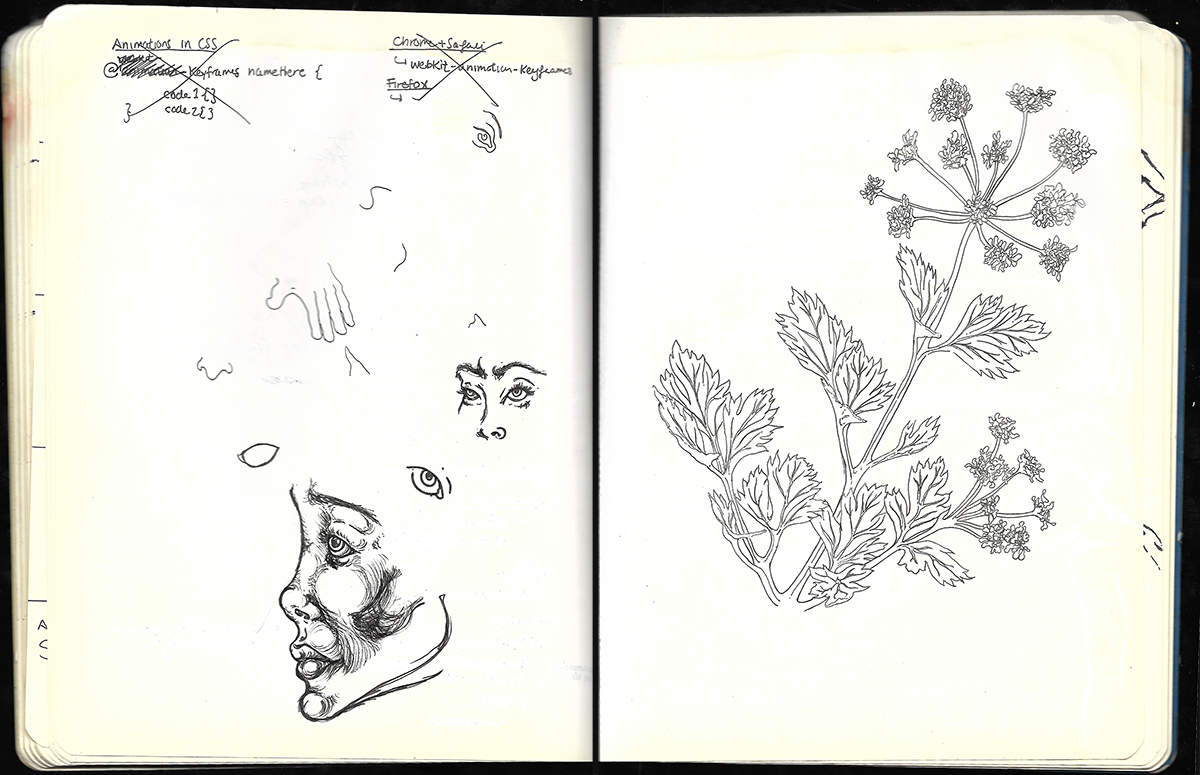 Animations in CSS
@ -Keyframes nameHere {
code1{}
} code2{}
Chrome + Safari
↳ webkit-animation-keyframes
Firefox
↳
A
C